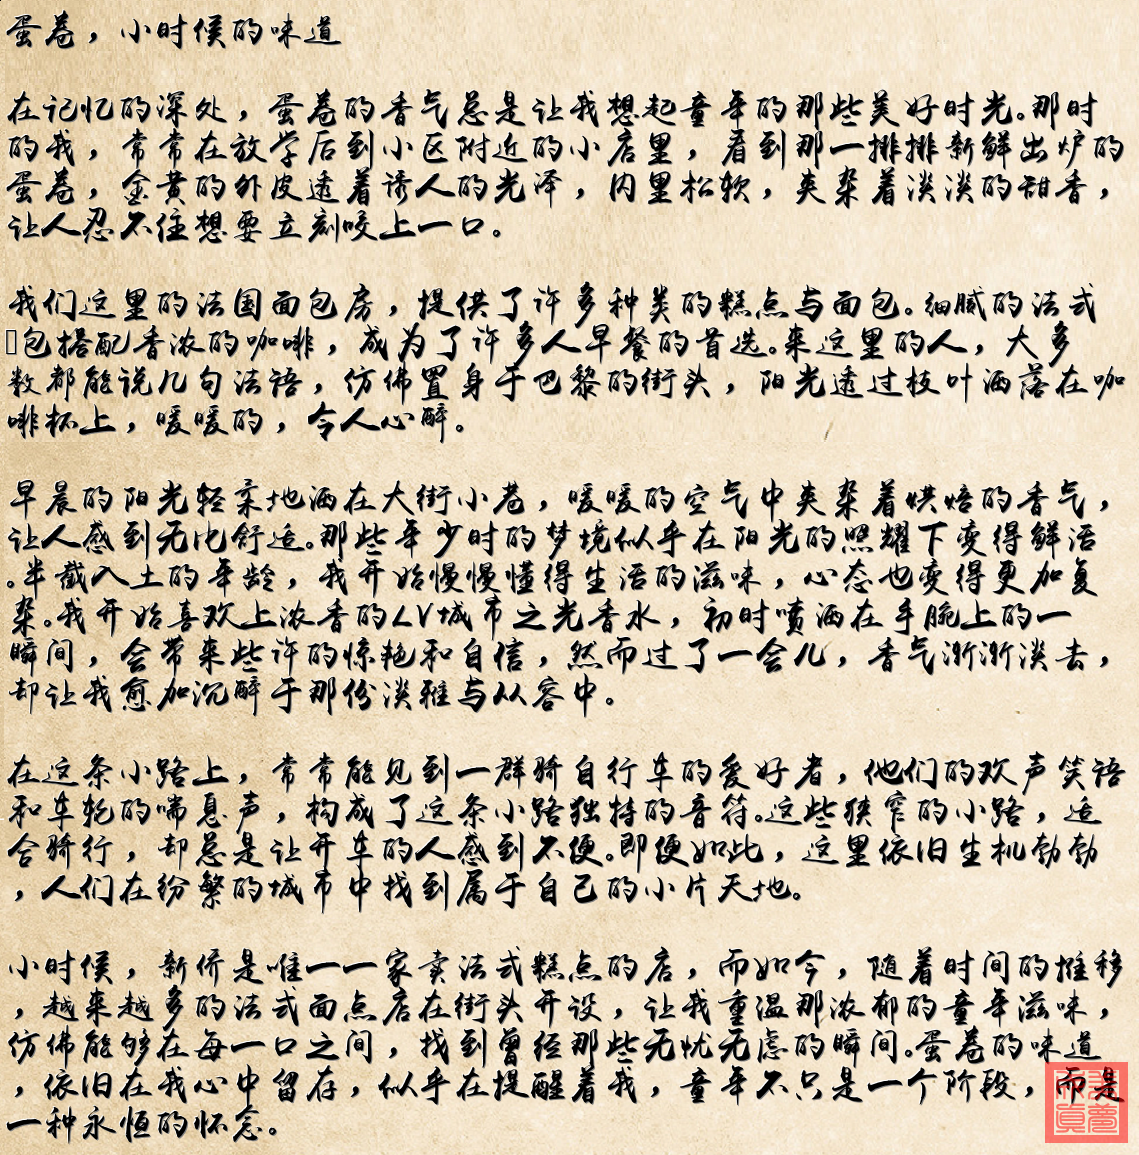 蛋卷，小时候的味道
在记忆的深处，蛋卷的香气总是让我想起童年的那些美好时光。那时
的我，常常在放学后到小区附近的小店里，看到那一排排新鲜出炉的
蛋卷，金黄的外皮透着诱人的光泽，内里松软，夹杂着淡淡的甜香，
让人忍不住想要立刻咬上一口。
我们这里的法国面包房，提供了许多种类的糕点与面包。细腻的法式
包搭配香浓的咖啡，成为了许多人早餐的首选。来这里的人，大多
数都能说几句法语，仿佛置身于巴黎的街头，阳光透过枝叶洒落在咖
啡杯上，暖暖的，令人心醉。
早晨的阳光轻柔地洒在大街小巷，暖暖的空气中夹杂着烘焙的香气，
让人感到无比舒适。那些年少时的梦境似乎在阳光的照耀下变得鲜活
。半截入土的年龄，我开始慢慢懂得生活的滋味，心态也变得更加复
杂。我开始喜欢上浓香的LV城市之光香水，初时喷洒在手腕上的一
瞬间，会带来些许的惊艳和自信，然而过了一会儿，香气渐渐淡去，
却让我愈加沉醉于那份淡雅与从容中。
在这条小路上，常常能见到一群骑自行车的爱好者，他们的欢声笑语
和车轮的喘息声，构成了这条小路独特的音符。这些狭窄的小路，适
合骑行，却总是让开车的人感到不便。即便如此，这里依旧生机勃勃
，人们在纷繁的城市中找到属于自己的小片天地。
小时候，新侨是唯一一家卖法式糕点的店，而如今，随着时间的推移
，越来越多的法式面点店在街头开设，让我重温那浓郁的童年滋味，
仿佛能够在每一口之间，找到曾经那些无忧无虑的瞬间。蛋卷的味道
，依旧在我心中留存，似乎在提醒着我，童年不只是一个阶段，而是
一种永恒的怀念。